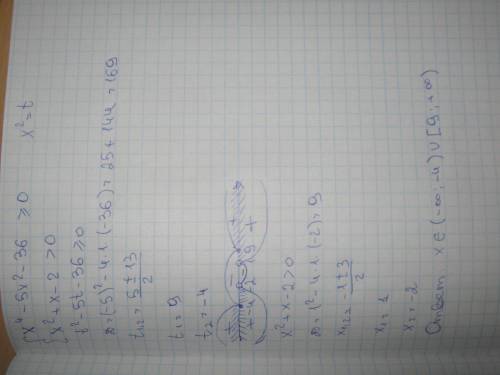 { x⁴ - 5x² - 36 ≥ 0      x² = t
{ x² + x - 2 > 0
t² - 5t - 36 ≥ 0
D = (-5)² - 4 · 1 · (-36) = 25 + 144 = 169
t₁,₂ = (5 ± 13)/2
t₁ = 9
t₂ = -4
x² + x - 2 > 0
D = 1² - 4 · 1 · (-2) = 9
x₁,₂ = (-1 ± 3)/2
x₁ = 1
x₂ = -2
Ответ x ∈ (-∞; -4) ∪ [9; +∞)